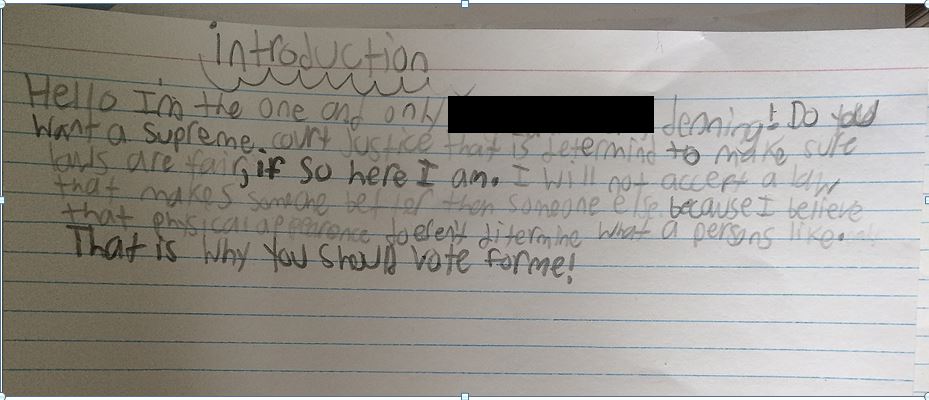 introduction
Hello I'm the one and only demingt! Do you
Want a Supreme court justice that is determind to make sure
laws are fair; if so here I am. I will not accept a law
that makes someone better than someone else because I believe
that physical apperence doesn't ditermine what a persons like.
That is why you should vote for me!